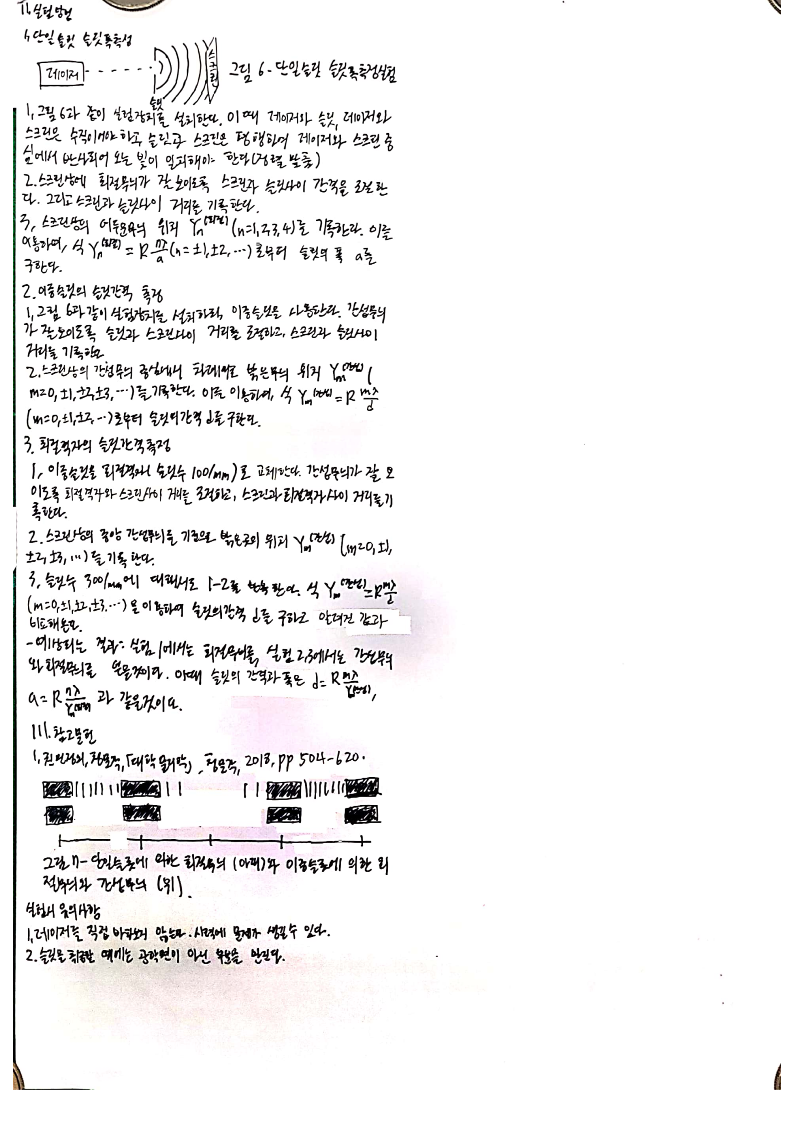 II. 실험방법
1. 단일슬릿 슬릿폭측정
레이저
슬릿
스크린
그림 6-단일슬릿 슬릿폭측정실험
1. 그림 6과 같이 실험장치를 설치한다. 이 때 레이저와 슬릿, 레이저와
스크린은 수직이어야 하고, 슬릿과 스크린은 평행하여 레이저와 스크린 중
심에서 반사되어 오는 빛이 일치해야 한다(정렬 맞춤)
2. 스크린상에 회절무늬가 잘 보이도록 스크린과 슬릿사이 간격을 조절한
다. 그리고 스크린과 슬릿사이 거리를 기록한다.
3. 스크린상의 어두운무늬 위치 Yn(회절) (n=1,2,3,4)를 기록한다. 이를
이용하여, 식 Yn(회절) = R nλ/a (n=±1,±2,…)로부터 슬릿의 폭 a를
구한다.
2. 이중슬릿의 슬릿간격 측정
1. 그림 6과같이 실험장치를 설치하되, 이중슬릿을 사용한다. 간섭무늬
가 잘보이도록 슬릿과 스크린사이 거리를 조절하고, 스크린과 슬릿사이
거리를 기록하고
2. 스크린상의 간섭무늬 중심에서 차례대로 밝은무늬 위치 Ym(간섭) (
m=0, ±1, ±2, ±3, …)를 기록한다. 이를 이용하여, 식 Ym(간섭) = R mλ/d
(m=0,±1,±2,…)로부터 슬릿의간격 d를 구한다.
3. 회절격자의 슬릿간격측정
1. 이중슬릿을 회절격자(슬릿수 100/mm)로 교체한다. 간섭무늬가 잘 보
이도록 회절격자와 스크린사이 거리를 조절하고, 스크린과 회절격자사이 거리를기
록한다.
2. 스크린상의 중앙 간섭무늬를 기준으로 밝은곳의 위치 Ym(간섭) (m=0, ±1,
±2, ±3, …)를 기록한다.
3. 슬릿수 300/mm에 대해서도 1-2를 반복한다. 식 Ym(간섭)=R mλ/d
(m=0,±1,±2,±3,…)을 이용하여 슬릿의간격 d를 구하고 알려진 값과
비교해본다.
-예상되는 결과: 실험 1에서는 회절무늬를, 실험 2,3에서는 간섭무늬
와 회절무늬를 얻을것이다. 이때 슬릿의 간격과 폭은 d= R mλ/Ym(간섭),
a= R nλ/Yn(회절) 과 같을것이다.
III. 참고문헌
1. 청문각, 「대학 물리학」, 청문각, 2013, pp 504-620.
그림 7-단일슬릿에 의한 회절무늬 (아래)와 이중슬릿에 의한 회
절무늬와 간섭무늬 (위).
실험시 유의사항
1. 레이저를 직접 바라보지 않는다. 시력에 문제가 생길수 있다.
2. 슬릿을 취급할 때에는 광학면이 아닌 부분을 만진다.